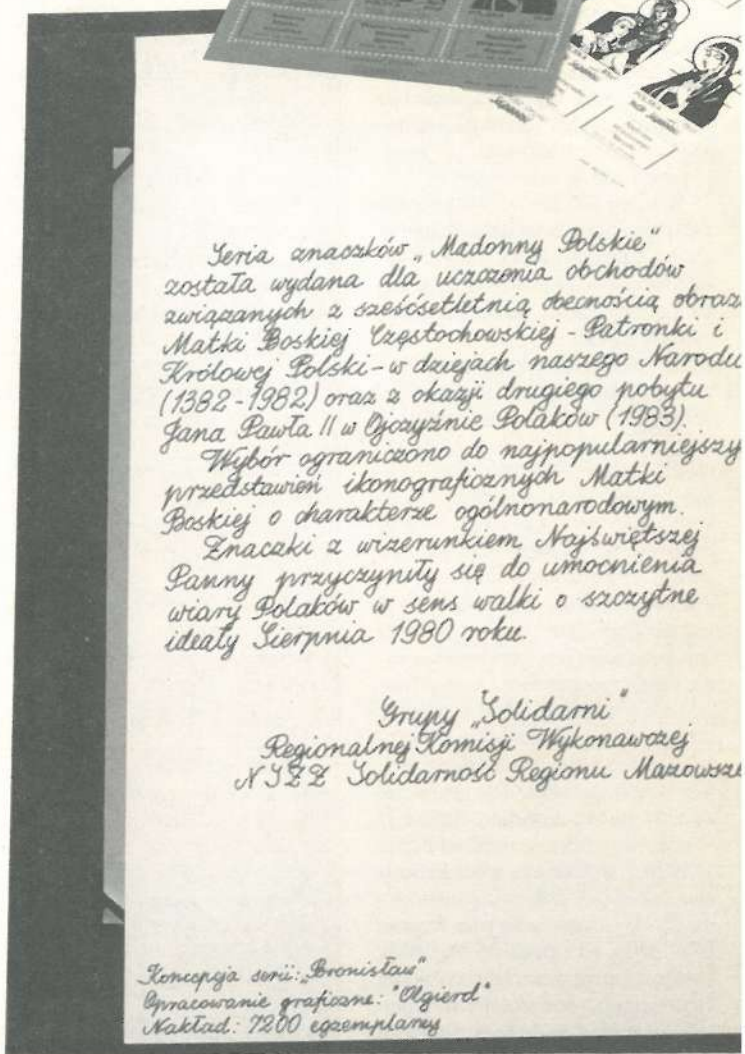 Seria znaczków „Madonny Polskie"
została wydana dla uczczenia obchodów
związanych z sześćsetletnią obecnością obraz
Matki Boskiej Częstochowskiej - Patronki i
Królowej Polski - w dziejach naszego Narodu
(1382-1982) oraz z okazji drugiego pobytu
Jana Pawła II w Ojczyźnie Polaków (1983).
Wybór ograniczono do najpopularniejszy
przedstawień ikonograficznych Matki
Boskiej o charakterze ogólnonarodowym.
Znaczki z wizerunkiem Najświętszej
Panny przyczyniły się do umocnienia
wiary Polaków w sens walki o szczytne
ideały Sierpnia 1980 roku.
Grupy „Solidarni"
Regionalnej Komisji Wykonawczej
NSZZ Solidarność Regionu Mazowsze
Koncepcja serii: „Bronisław"
Opracowanie graficzne: "Olgierd"
Nakład: 7200 egzemplarzy